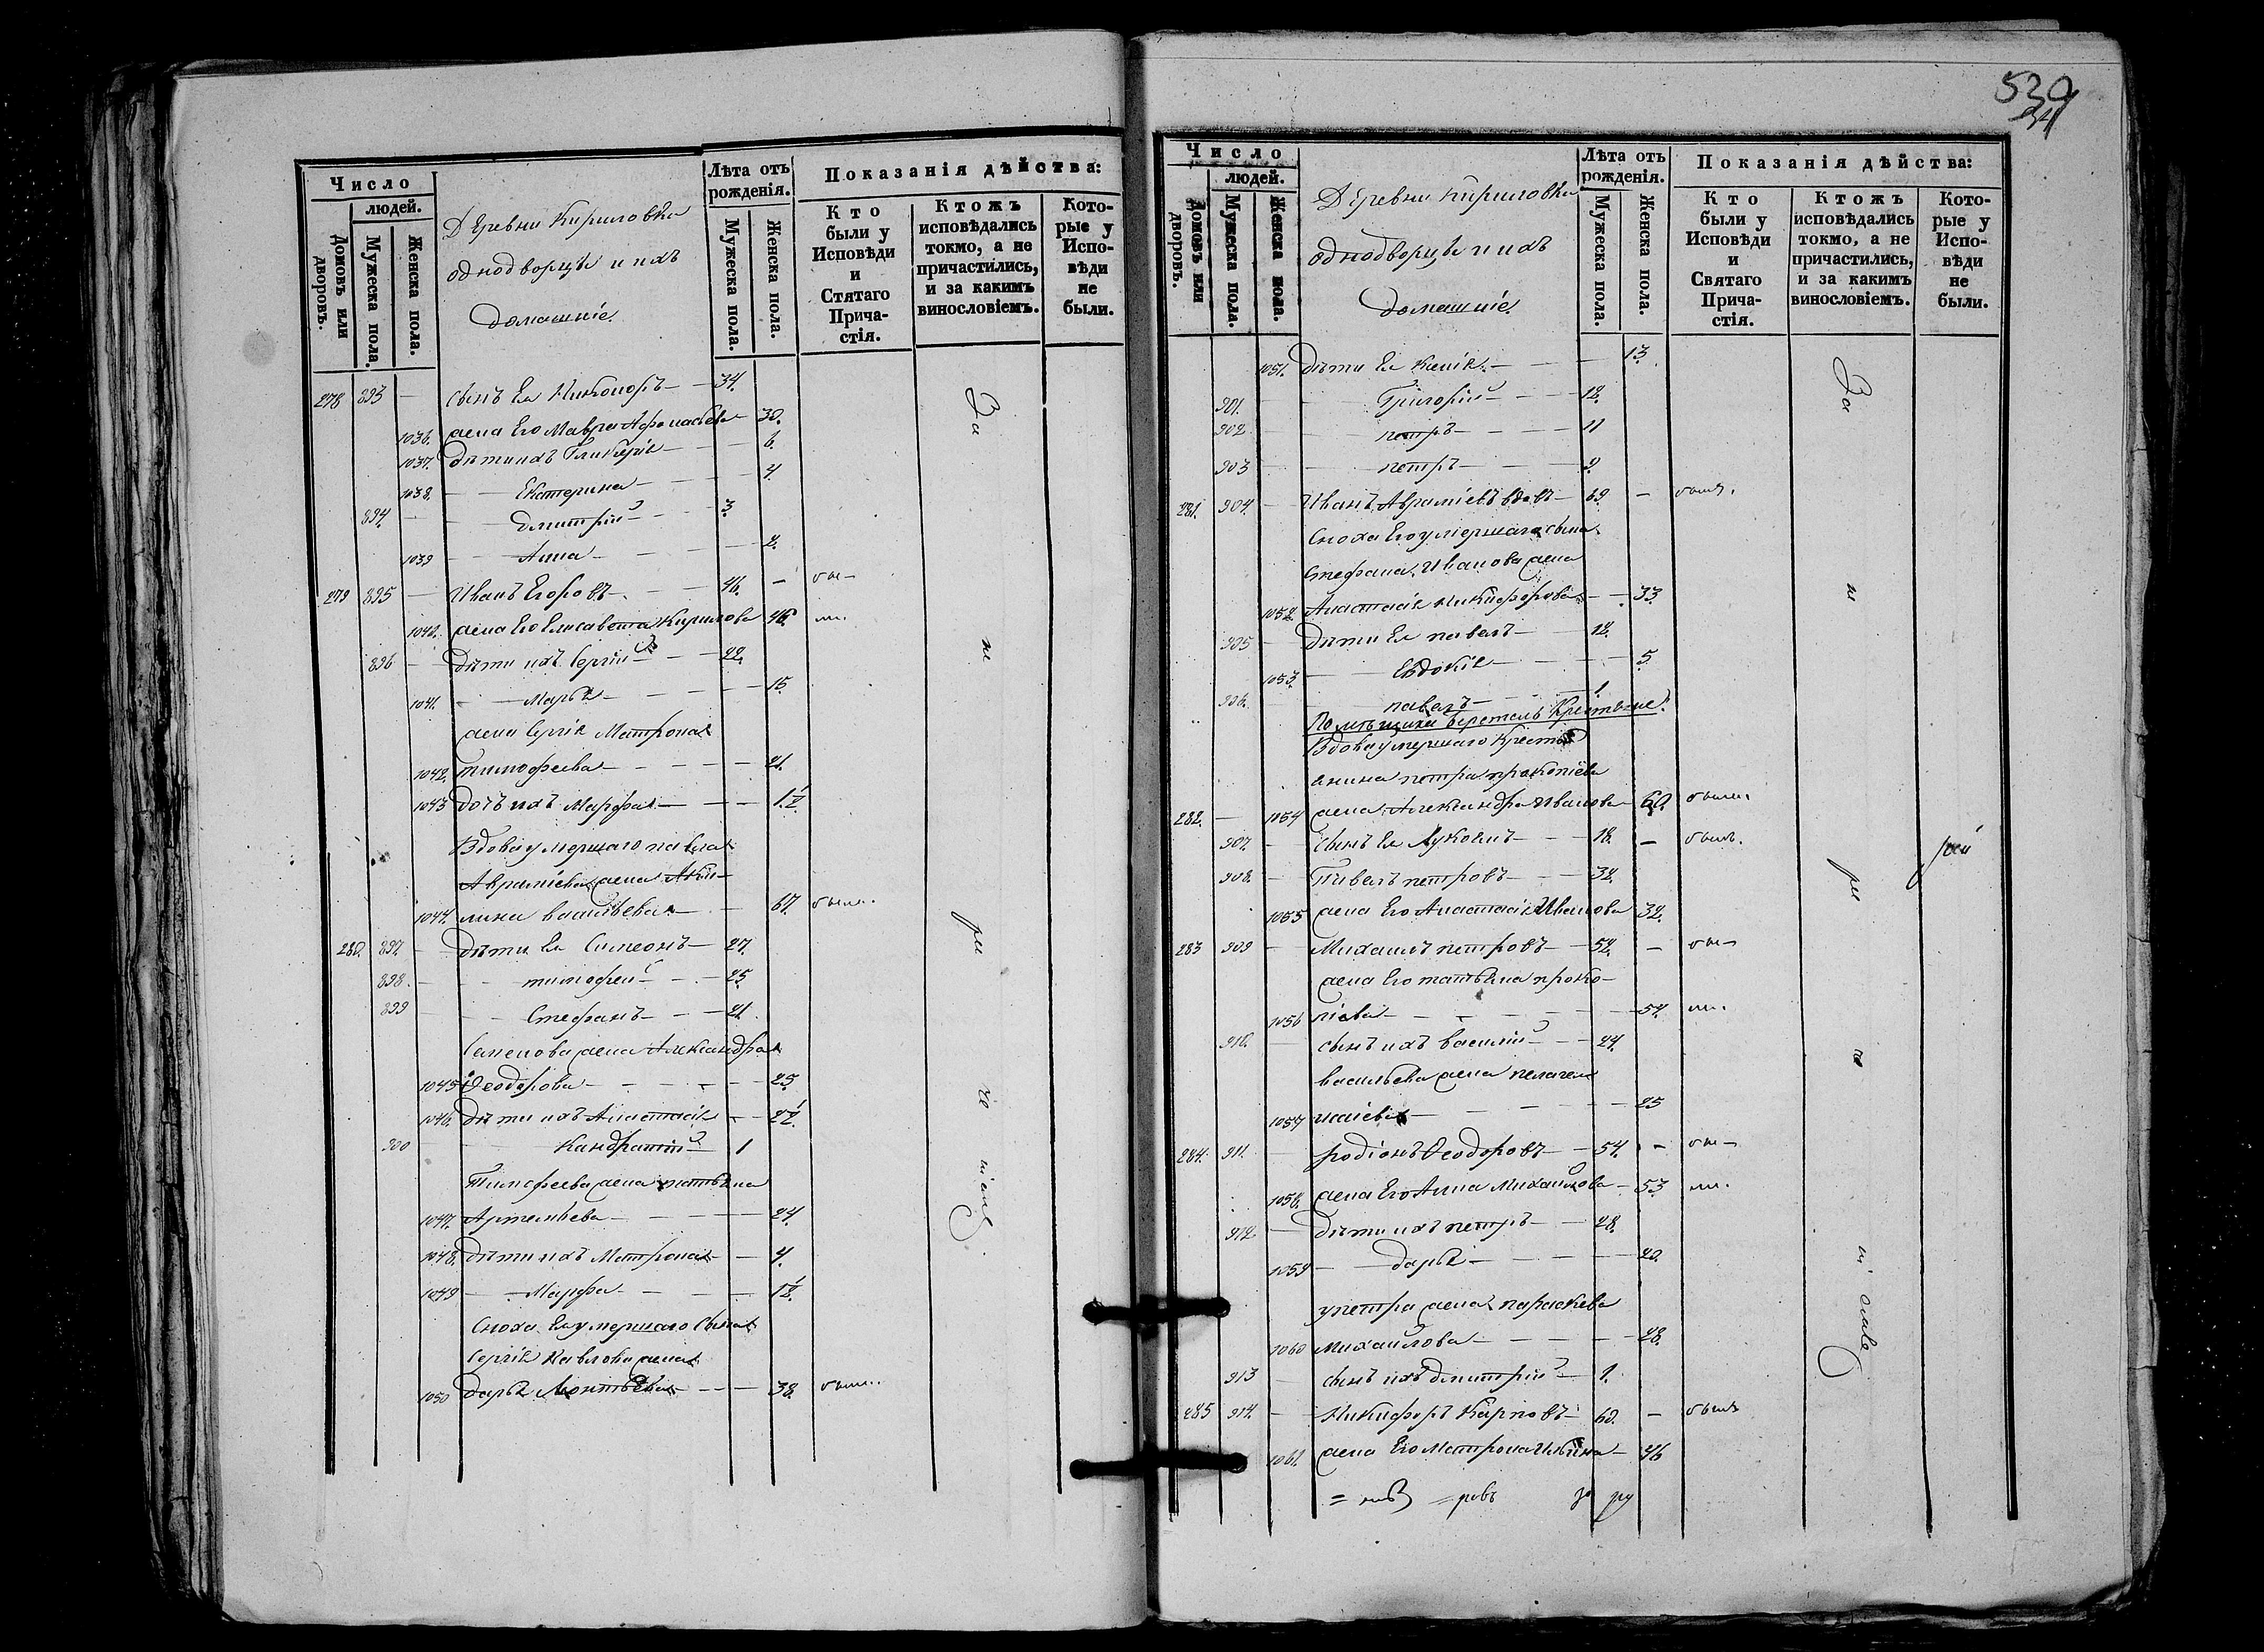 Число
людей.
Домовъ или дворовъ.
Мужеска пола.
Женска пола.
Деревни Кириловки
однодворцы и ихъ
домашніе.
Лѣта отъ рожденія.
Мужеска пола.
Женска пола.
Показанія дѣйства:
Кто были у Исповѣди и Стятаго Прича-стія.
Ктожъ исповѣдались токмо, а не причастились, и за какимъ винословіемъ.
Кото-рые у Испо-вѣди не были.
278 893 — сынъ Ея Никоноръ — 34.
1036. жена Его Мавра Афонасьева 30.
1037. дѣти ихъ Гликерія — 6.
1038. — Екатерина — 4.
894. — дмитрій — 3
1039 — Анна — 2.
279 895 — Иванъ Егоровъ — 46. —
1040. жена Его Елисавета Кирилова 46.
896 — дѣти ихъ Сергій — 22.
1041. — Марья — 15
жена Сергія Матрона
1042. тимофеева — 21.
1043 дочь ихъ Марфа — 1 1/2
Вдова умершаго павла
Авраміева жена Аки-
1044. лина васильева — 67.
280. 897. — дѣти Ея Симеонъ — 27.
898. — тимофей — 25
899 — Стефанъ — 21.
Семенова жена Александра
1045 Ѳеодорова — 25
1046. дѣти ихъ Анастасія — 2 1/2
900 — Кандратій — 1
Тимофеева жена татьяна
1047. Артемьева — 24.
1048. дѣти ихъ Матрона — 4.
1049 — Марфа — 1 1/2.
Сноха Ея умершаго Сына
Сергія Павлова жена
1050 дарья Леонтьева — 38.
За не ре че ніемъ.
530
Число
людей.
Домовъ или дворовъ.
Мужеска пола.
Женска пола.
Деревни Кириловки
однодворцы и ихъ
домашніе.
Лѣта отъ рожденія.
Мужеска пола.
Женска пола.
Показанія дѣйства:
Кто были у Исповѣди и Святаго Прича-стія.
Ктожъ исповѣдались токмо, а не причастились, и за какимъ винословіемъ.
Кото-рые у Испо-вѣди не были.
1051. дѣти Ея Ксенія — 13.
901. — Григорій — 12.
902 — петръ — 11
903 — петръ — 9.
281. 904. — Иванъ Авраміевъ вдовъ — 69. — былъ.
Сноха Его умершаго сына
Стефана Иванова жена
1052. Анастасія Никифорова — 33.
905 — дѣти Ея павелъ — 12.
1053. — Евдокія — 5.
906. — павелъ — 1.
Помѣщики Крестьяне.
Вдова умершаго Крестья
анина петра прокопіева
282. — 1054 жена Александра Иванова 60.
907. — сынъ Ея Лукоянъ — 18. — былъ.
908. — Павелъ петровъ — 32.
1055 жена Его Анастасія Иванова 32.
283 909 — Михаилъ петровъ — 52. —
жена Его татьяна проко-
1056 піева — 54.
910. — сынъ ихъ василій — 24.
васильева жена пелагея
1057 — 25
284. 911. — родіонъ Ѳеодоровъ — 54. —
1058. жена Его Анна Михайлова — 53
912. — дѣти ихъ петръ — 28.
1059 — дарья — 20.
у петра жена параскева
1060 михайлова — 28.
913 — сынъ ихъ дмитрій — 1.
285 914. — Никифоръ Карповъ — 60. — былъ
1061. жена Его Матрона Ильина — 46
За не ре че